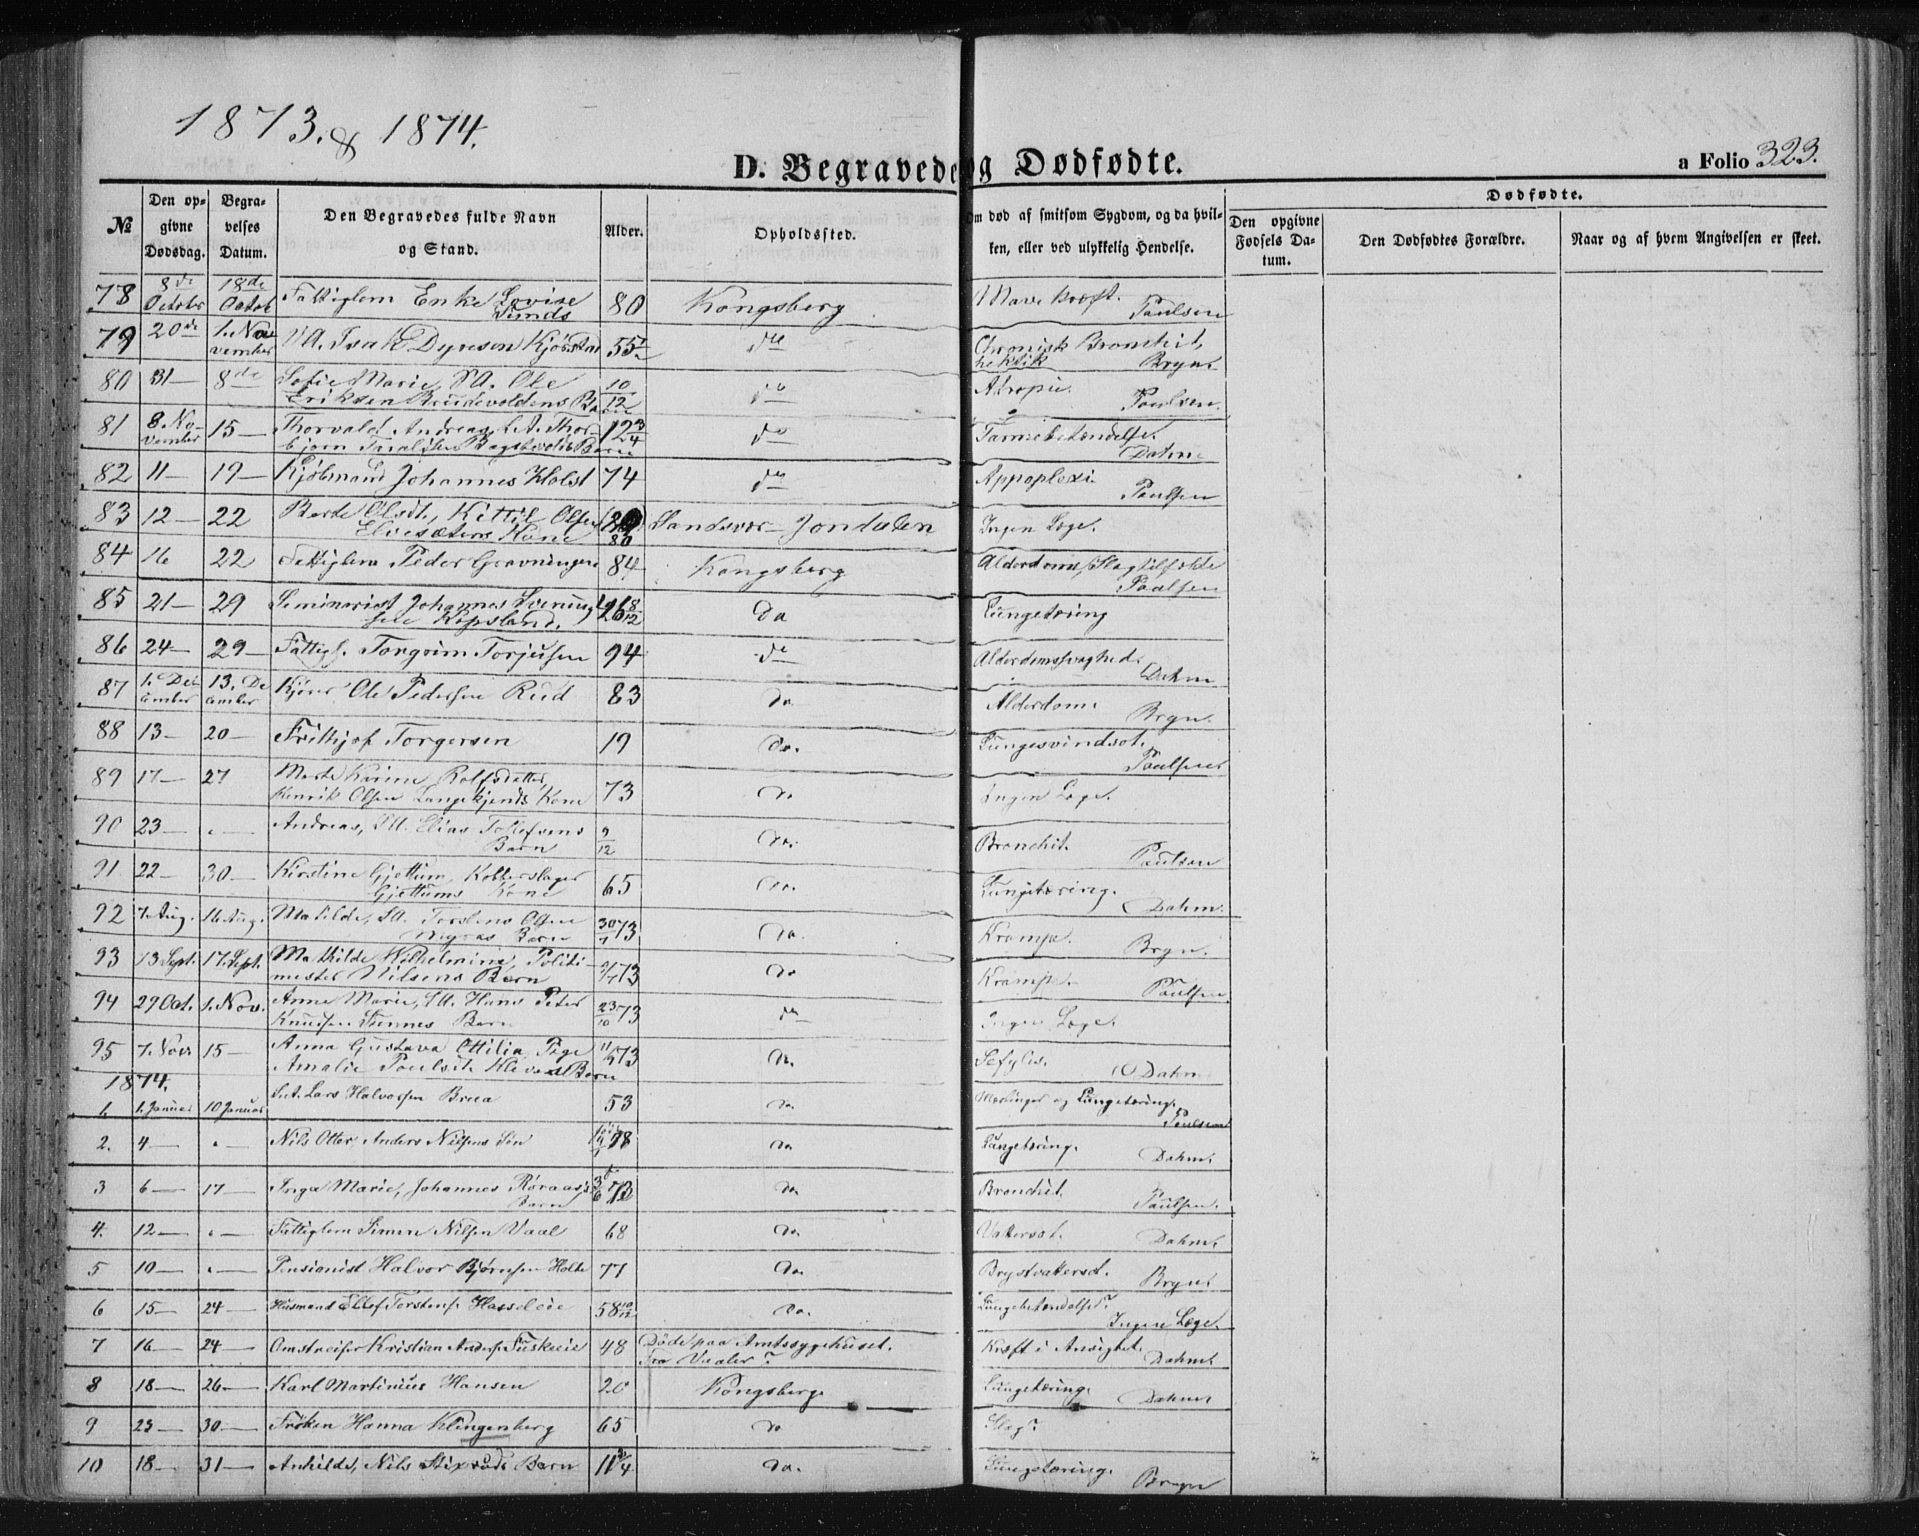 1873. & 1874.
D. Begravede og Dødfødte.
a Folio 323.
№
Den opgivne Dødsdag.
Begravelses Datum.
Den Begravedes fulde Navn og Stand.
Alder.
Opholdssted.
Om død af smitsom Sygdom, og da hvilken, eller ved ulykkelig Hendelse.
Dødfødte.
Den opgivne Fødsels Datum.
Den Dødfødtes Forældre.
Naar og af hvem Angivelsen er skeet.
78 8de October 18de Octob Fattiglem Enke Lovise Sunds 80 Kongsberg Mavekræft. Paulsen
79 20de 1. November Isak Dyresen 55 do Chronisk Bronchit, hektik Bryn.
80 31 8de Sofie Marie, Ole Eriksen Barn 10/12 do Paulsen.
81 8. November 15 Thorvald Andreas, Thorbjørn Barn 12 3/4 do Tarmebetændelse. Dahm
82 11 19 Kjøbmand Johannes Holst 74 do Appoplexi. Paulsen
83 12 22 Berte Olsdt., Kittil Olsen Kone 80 Sandsvær Jondalen Ingen Læge.
84 16 22 Fattiglem Peder 84 Kongsberg Alderdoms Slagtilfælde Paulsen
85 21 29 Seminarist Johannes 26 8/12 Do Lungetæring
86 24 29 Fattigl. Torgrim Torjusen 94 do Alderdomssvaghed. Dahm
87 1. December 13. December Ole Pedersen Rud 83 Do Alderdom. Bryn.
88 13 20 Frithjof Torgersen 19 Do. Lungesvindsot. Paulsen
89 17 27 Marte Karine Rolfsdatter, Henrik Olsen Langekjends Kone 73 Do Ingen Læge.
90 23 " Andreas, Elias Tollefsens Barn 9/12 Do. Bronchit. Paulsen
91 22 30 Kirstine Gjettum, Kobberslager Gjettums Kone 65 Do. Lungetæring. Dahm.
92 7. Aug. 16 Aug. Matilde, Torstens Olsen Myras Barn 30/7 73 Do. Krampe. Bryn.
93 13 Sept. 17. Sept. Mathilde Wilhelmine, Politimester Nilsens Barn 73 Do Krampe. Paulsen
94 29 Oct. 1. Nov. Anne Marie, Hans Peter Knudsen Barn 23/10 73 do Ingen Læge.
95 7. Novr 15 Anna Gustava Ottilia, Pige Amalie Paulsdt. Barn 73 Do. Sefylis. Dahm
1874.
1. 1. Januar 10 Januar Lars Halvorsen Brua 53 Do. Mæslinger og Lungetæring. Paulsen
2. 4 " Nils Otter Anders Nilsens Søn Lungetæring. Dahm.
3 6 17 Inga Marie, Johannes Røraas's Barn 73 Do Bronchit. Paulsen.
4. 12 " Fattiglem Simen Nilsen Vaal 68 Do. Vattersot. Dahm.
5 10 " Pensionist Halvor Bjørnsen Holte 77 Do. Brystvattersot. Bryn.
6 15 24 Husmand Ellef Torstens. 58 10/12 Do. Lungebetændelse? Ingen Læge.
7 16 24 Omstreifer Kristian Anders. 48 Døde paa Amtssygehuset. fra Vaaler? Kræft i Ansigtet. Dahm.
8 18 26 Karl Martinius Hansen 20 Kongsberg Lungetæring. Dahm.
9 23 30 Frøken Hanna Klingenberg 65 Do Slag?
10 18 31 Anhilde, Nils Barn 11 3/4 Do. Lungetæring. Bryn